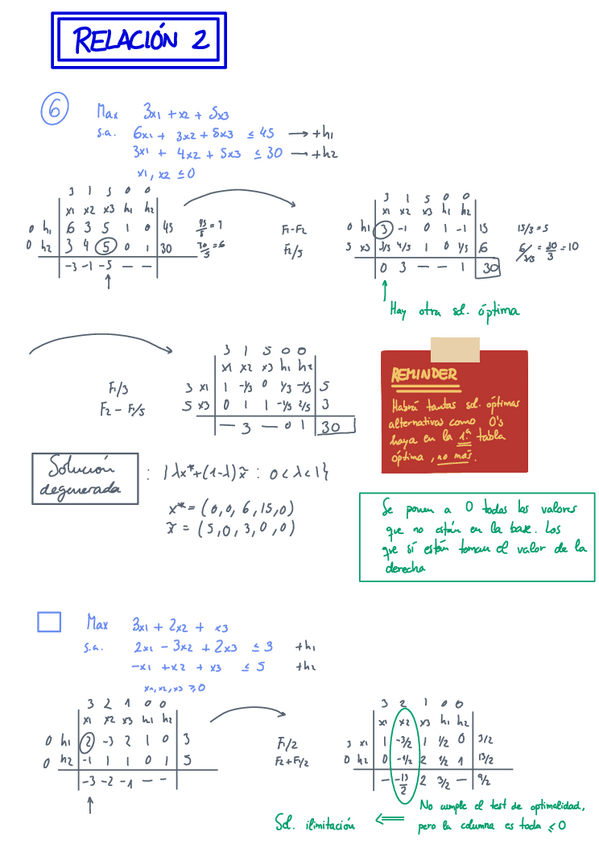 RELACIÓN 2
6
Max 3x1 + x2 + 5x3
s.a. 6x1 + 3x2 + 5x3 ≤ 45 → +h1
3x1 + 4x2 + 5x3 ≤ 30 → +h2
x1, x2 ≤ 0
3 1 5 0 0
x1 x2 x3 h1 h2
0 h1 6 3 5 1 0 45 45/5 = 9
0 h2 3 4 5 0 1 30 30/5 = 6
-3 -1 -5 — —
↑
F1-F2
F2/5
3 1 5 0 0
x1 x2 x3 h1 h2
0 h1 3 -1 0 1 -1 15 15/3 = 5
5 x3 3/5 4/5 1 0 1/5 6 6/3/5 = 30/3 = 10
0 3 — — 1 30
↑
Hay otra sol. óptima
F1/3
F2 - F1/5
3 1 5 0 0
x1 x2 x3 h1 h2
3 x1 1 -1/3 0 1/3 -1/3 5
5 x3 0 1 1 -1/5 2/5 3
— 3 — 0 1 30
REMINDER
Habrá tantas sol. óptimas
alternativas como 0's
haya en la 1ª tabla
óptima, no más.
Solución
degenerada
: {λx*+(1-λ)x̃ : 0<λ<1}
x* = (0,0,6,15,0)
x̃ = (5,0,3,0,0)
Se ponen a 0 todos los valores
que no están en la base. Los
que sí están toman el valor de la
derecha
Max 3x1 + 2x2 + x3
s.a. 2x1 - 3x2 + 2x3 ≤ 3 +h1
-x1 + x2 + x3 ≤ 5 +h2
x1, x2, x3 ≥ 0
3 2 1 0 0
x1 x2 x3 h1 h2
0 h1 2 -3 2 1 0 3
0 h2 -1 1 1 0 1 5
-3 -2 -1 — —
↑
F1/2
F2+F1/2
3 2 1 0 0
x1 x2 x3 h1 h2
3 x1 1 -3/2 1 1/2 0 3/2
0 h2 0 -1/2 2 1/2 1 13/2
— -13/2 2 3/2 — 9/2
No cumple el test de optimalidad,
pero la columna es toda ≤ 0
Sol. ilimitación ⇐